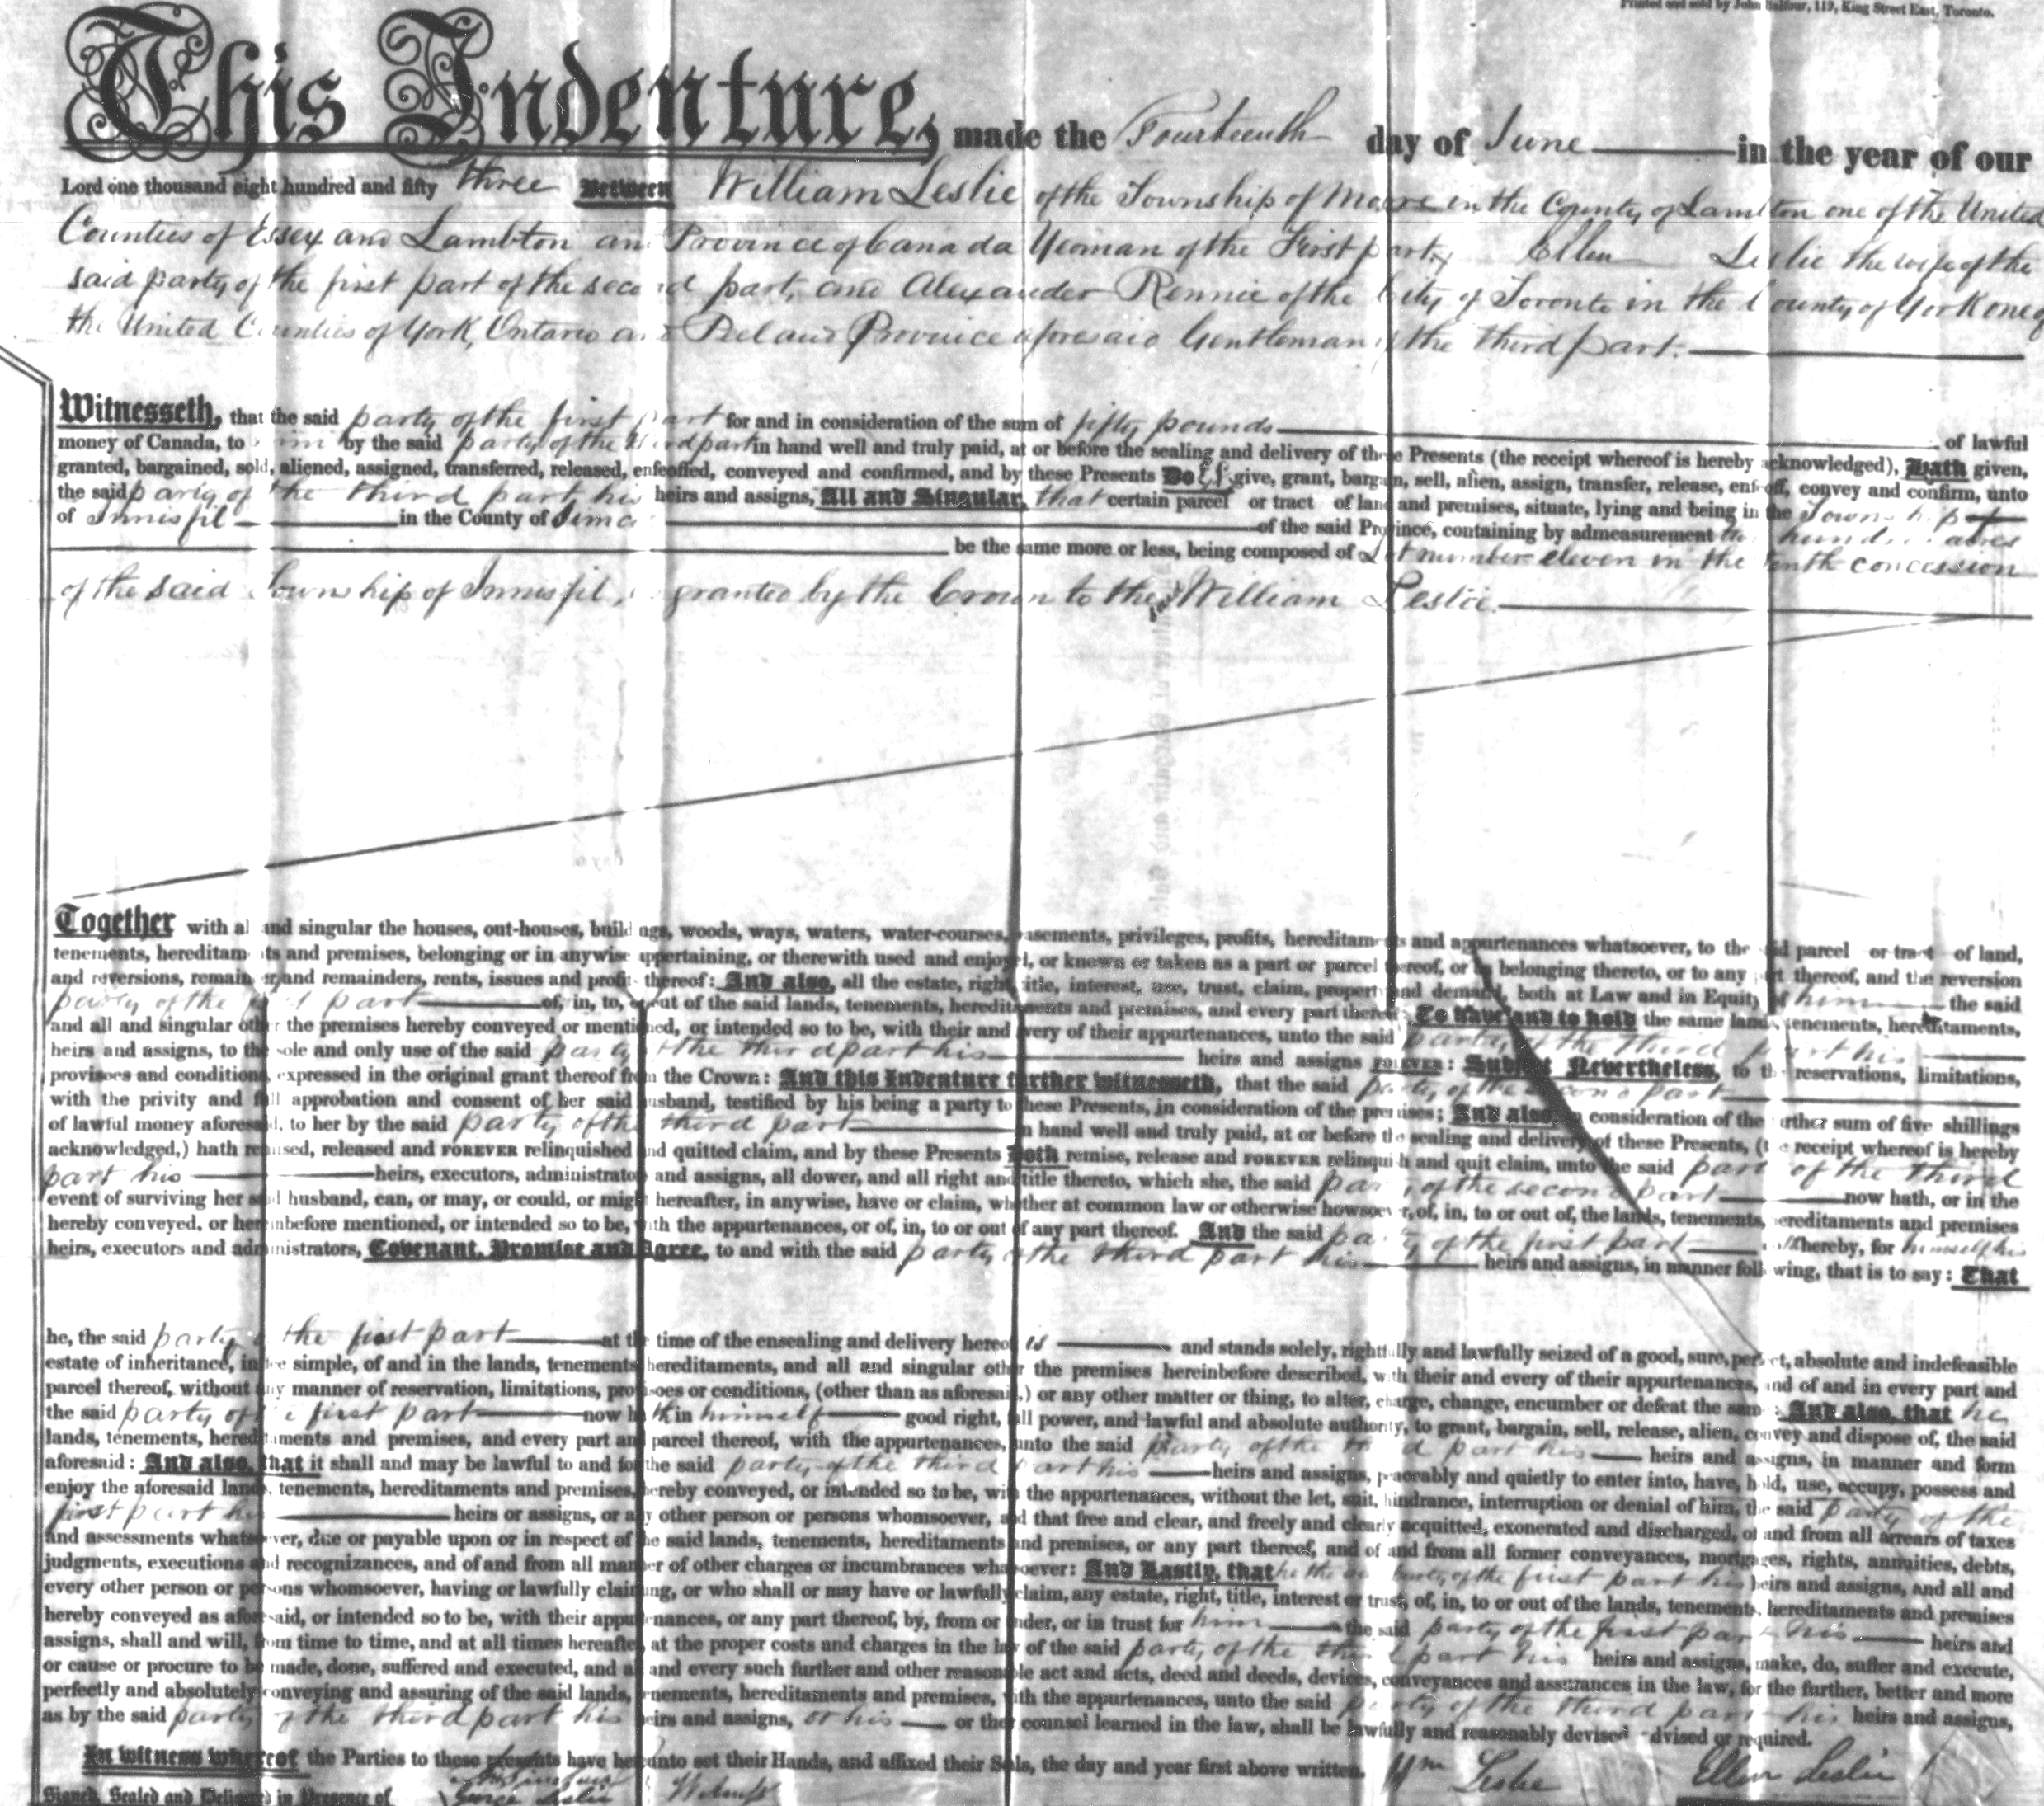 Printed and sold by John Balfour, 119, King Street East, Toronto.
This Indenture, made the Fourteenth day of June in the year of our
Lord one thousand eight hundred and fifty three Between William Leslie of the Township of Moore in the County of Lambton one of the United
Counties of Essex and Lambton and Province of Canada Yeoman of the First part, Ellen Leslie the wife of the
said party of the first part of the second part, and Alexander Rennie of the City of Toronto in the County of York one of
the United Counties of York, Ontario and Peel and Province aforesaid Gentleman of the third part.
Witnesseth, that the said party of the first part for and in consideration of the sum of fifty pounds of lawful
money of Canada, to him by the said party of the third part in hand well and truly paid, at or before the sealing and delivery of these Presents (the receipt whereof is hereby acknowledged), Hath given,
granted, bargained, sold, aliened, assigned, transferred, released, enfeoffed, conveyed and confirmed, and by these Presents Doth give, grant, bargain, sell, alien, assign, transfer, release, enfeoff, convey and confirm, unto
the said party of the third part, his heirs and assigns, All and Singular, that certain parcel or tract of land and premises, situate, lying and being in the Township
of Innisfil in the County of Simcoe of the said Province, containing by admeasurement hundred acres
be the same more or less, being composed of Lot number eleven in the tenth concession
of the said Township of Innisfil, granted by the Crown to the said William Leslie.
Together with all and singular the houses, out-houses, buildings, woods, ways, waters, water-courses, easements, privileges, profits, hereditaments and appurtenances whatsoever, to the said parcel or tract of land,
tenements, hereditaments and premises, belonging or in anywise appertaining, or therewith used and enjoyed, or known or taken as a part or parcel thereof, or as belonging thereto, or to any part thereof, and the reversion
and reversions, remainder and remainders, rents, issues and profits thereof: And also, all the estate, right, title, interest, use, trust, claim, property and demand, both at Law and in Equity of him the said
party of the first part of, in, to, or out of the said lands, tenements, hereditaments and premises, and every part thereof: To have and to hold the same lands, tenements, hereditaments,
and all and singular other the premises hereby conveyed or mentioned, or intended so to be, with their and every of their appurtenances, unto the said party of the third part his
heirs and assigns, to the sole and only use of the said party of the third part his heirs and assigns FOREVER: Subject Nevertheless, to the reservations, limitations,
provisoes and conditions, expressed in the original grant thereof from the Crown: And this Indenture further witnesseth, that the said party of the second part
with the privity and full approbation and consent of her said husband, testified by his being a party to these Presents, in consideration of the premises; And also, in consideration of the further sum of five shillings
of lawful money aforesaid, to her by the said party of the third part in hand well and truly paid, at or before the sealing and delivery of these Presents, (the receipt whereof is hereby
acknowledged,) hath remised, released and FOREVER relinquished and quitted claim, and by these Presents Doth remise, release and FOREVER relinquish and quit claim, unto the said party of the third
part his heirs, executors, administrators and assigns, all dower, and all right and title thereto, which she, the said party of the second part now hath, or in the
event of surviving her said husband, can, or may, or could, or might hereafter, in anywise, have or claim, whether at common law or otherwise howsoever, of, in, to or out of, the lands, tenements, hereditaments and premises
hereby conveyed, or hereinbefore mentioned, or intended so to be, with the appurtenances, or of, in, to or out of any part thereof. And the said party of the first part doth hereby, for himself his
heirs, executors and administrators, Covenant, Promise and Agree, to and with the said party of the third part his heirs and assigns, in manner following, that is to say: That
he, the said party of the first part at the time of the ensealing and delivery hereof is and stands solely, rightfully and lawfully seized of a good, sure, perfect, absolute and indefeasible
estate of inheritance, in fee simple, of and in the lands, tenements, hereditaments, and all and singular other the premises hereinbefore described, with their and every of their appurtenances, and of and in every part and
parcel thereof, without any manner of reservation, limitations, provisoes or conditions, (other than as aforesaid,) or any other matter or thing, to alter, charge, change, encumber or defeat the same: And also, that he
the said party of the first part now hath in himself good right, full power, and lawful and absolute authority, to grant, bargain, sell, release, alien, convey and dispose of, the said
lands, tenements, hereditaments and premises, and every part and parcel thereof, with the appurtenances, unto the said party of the third part his heirs and assigns, in manner and form
aforesaid: And also, that it shall and may be lawful to and for the said party of the third part his heirs and assigns, peaceably and quietly to enter into, have, hold, use, occupy, possess and
enjoy the aforesaid lands, tenements, hereditaments and premises, hereby conveyed, or intended so to be, with the appurtenances, without the let, suit, hindrance, interruption or denial of him, the said party of the
first part his heirs or assigns, or any other person or persons whomsoever, and that free and clear, and freely and clearly acquitted, exonerated and discharged, of and from all arrears of taxes
and assessments whatsoever, due or payable upon or in respect of the said lands, tenements, hereditaments and premises, or any part thereof, and of and from all former conveyances, mortgages, rights, annuities, debts,
judgments, executions and recognizances, and of and from all manner of other charges or incumbrances whatsoever: And Lastly, that he the said party of the first part his heirs and assigns, and all and
every other person or persons whomsoever, having or lawfully claiming, or who shall or may have or lawfully claim, any estate, right, title, interest or trust, of, in, to or out of the lands, tenements, hereditaments and premises
hereby conveyed as aforesaid, or intended so to be, with their appurtenances, or any part thereof, by, from or under, or in trust for him the said party of the first part his heirs and
assigns, shall and will, from time to time, and at all times hereafter, at the proper costs and charges in the law of the said party of the third part his heirs and assigns, make, do, suffer and execute,
or cause or procure to be made, done, suffered and executed, and all and every such further and other reasonable act and acts, deed and deeds, devices, conveyances and assurances in the law, for the further, better and more
perfectly and absolutely conveying and assuring of the said lands, tenements, hereditaments and premises, with the appurtenances, unto the said party of the third part his heirs and assigns,
as by the said party of the third part his heirs and assigns, or his or their counsel learned in the law, shall be lawfully and reasonably devised advised or required.
In witness whereof the Parties to these presents have hereunto set their Hands, and affixed their Seals, the day and year first above written. Wm Leslie Ellen Leslie
Signed, Sealed and Delivered in Presence of George Leslie Witness